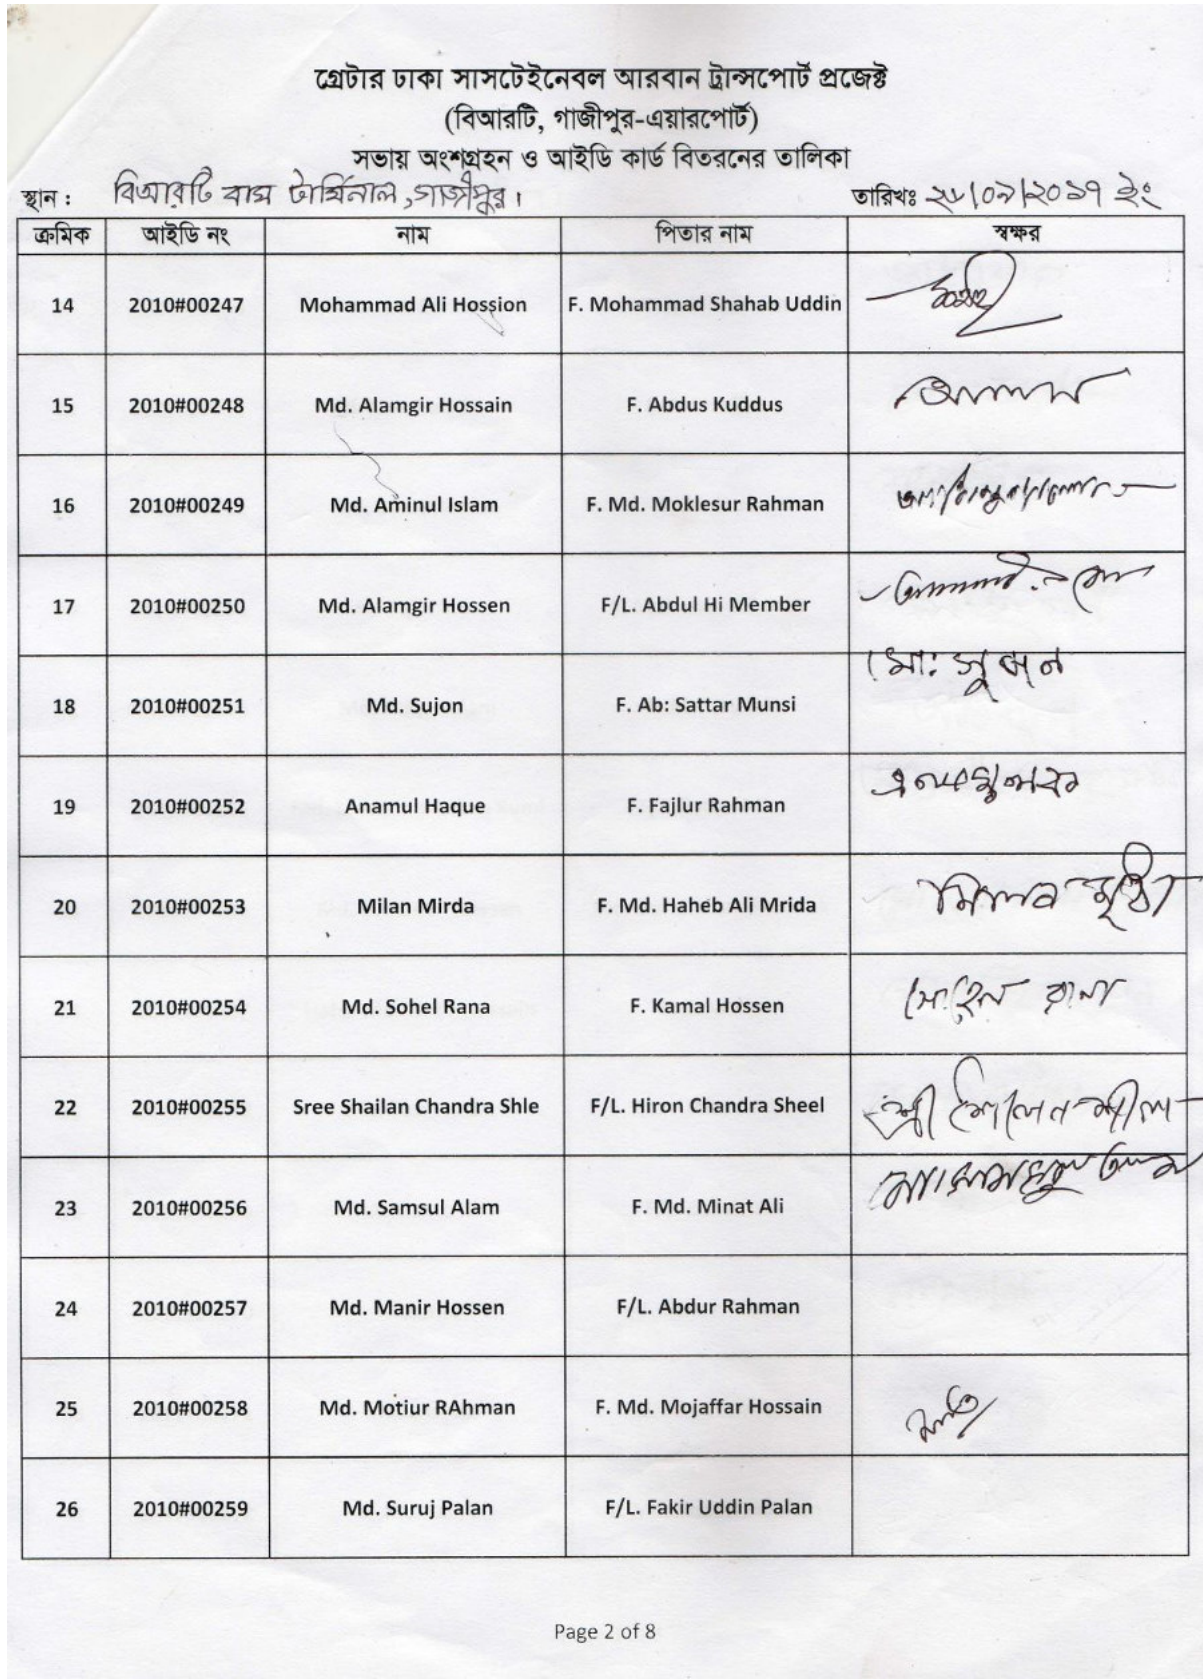 গ্রেটার ঢাকা সাসটেইনেবল আরবান ট্রান্সপোর্ট প্রজেক্ট
(বিআরটি, গাজীপুর-এয়ারপোর্ট)
সভায় অংশগ্রহন ও আইডি কার্ড বিতরনের তালিকা
স্থান : বিআরটি বাস টার্মিনাল, গাজীপুর। তারিখঃ ২৮/০৯/২০১৭ ইং
ক্রমিক আইডি নং নাম পিতার নাম স্বক্ষর
14 2010#00247 Mohammad Ali Hossion F. Mohammad Shahab Uddin
15 2010#00248 Md. Alamgir Hossain F. Abdus Kuddus
16 2010#00249 Md. Aminul Islam F. Md. Moklesur Rahman
17 2010#00250 Md. Alamgir Hossen F/L. Abdul Hi Member
18 2010#00251 Md. Sujon F. Ab: Sattar Munsi মো: সুজন
19 2010#00252 Anamul Haque F. Fajlur Rahman
20 2010#00253 Milan Mirda F. Md. Haheb Ali Mrida মিলন মৃধা
21 2010#00254 Md. Sohel Rana F. Kamal Hossen সোহেল রানা
22 2010#00255 Sree Shailan Chandra Shle F/L. Hiron Chandra Sheel শ্রী শৈলেন শীল
23 2010#00256 Md. Samsul Alam F. Md. Minat Ali
24 2010#00257 Md. Manir Hossen F/L. Abdur Rahman
25 2010#00258 Md. Motiur RAhman F. Md. Mojaffar Hossain মতি
26 2010#00259 Md. Suruj Palan F/L. Fakir Uddin Palan
Page 2 of 8